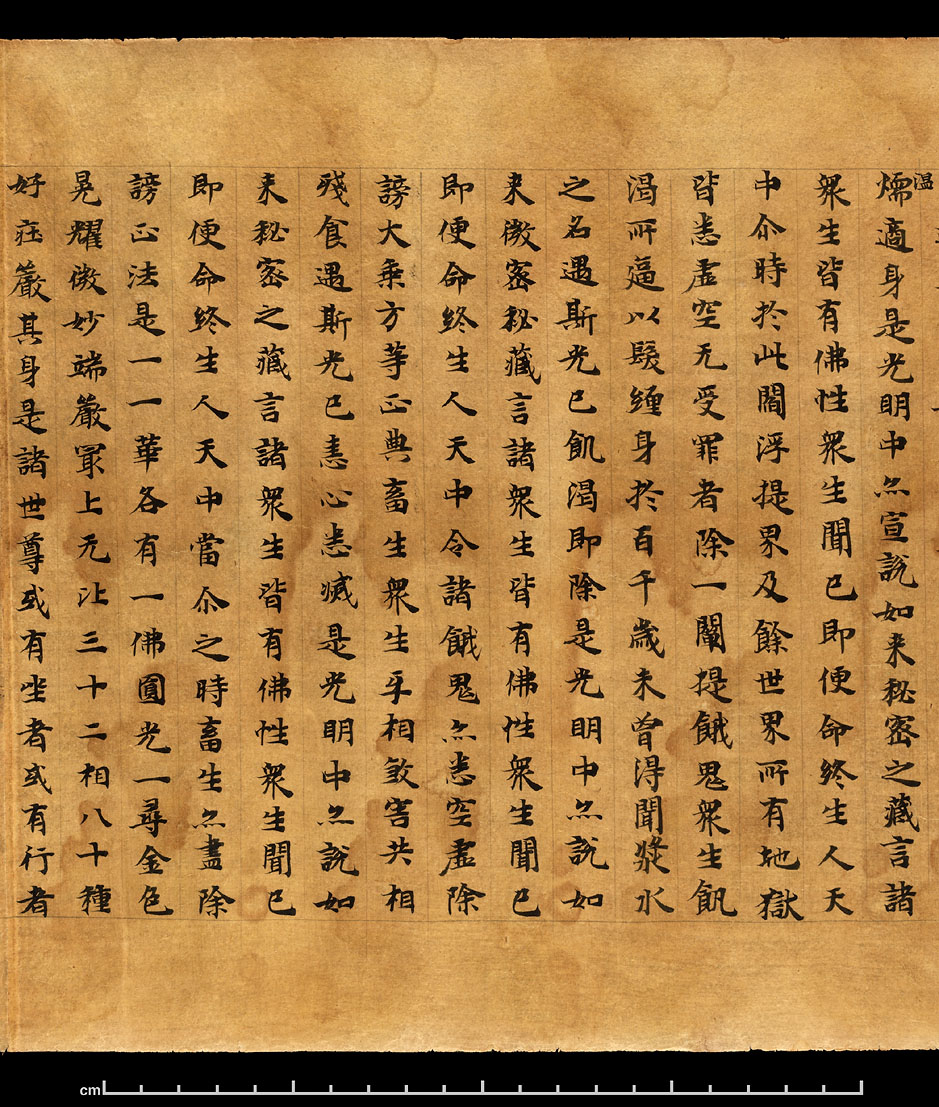 煗適身是光明中亦宣說如来秘密之藏言諸
衆生皆有佛性衆生聞已即便命終生人天
中尒時於此閻浮提界及餘世界所有地獄
皆悉虛空无受罪者除一闡提餓鬼衆生飢
渴所逼以髮纏身於百千歲未曾得聞漿水
之名遇斯光已飢渴即除是光明中亦說如
来微密秘藏言諸衆生皆有佛性衆生聞已
即便命終生人天中令諸餓鬼亦悉空虛除
謗大乗方等正典畜生衆生乎相煞害共相
殘食遇斯光已恚心悉滅是光明中亦說如
来秘密之藏言諸衆生皆有佛性衆生聞已
即便命終生人天中當尒之時畜生亦盡除
謗正法是一一華各有一佛圓光一尋金色
晃耀微妙端嚴冣上无比三十二相八十種
好莊嚴其身是諸世尊或有坐者或有行者